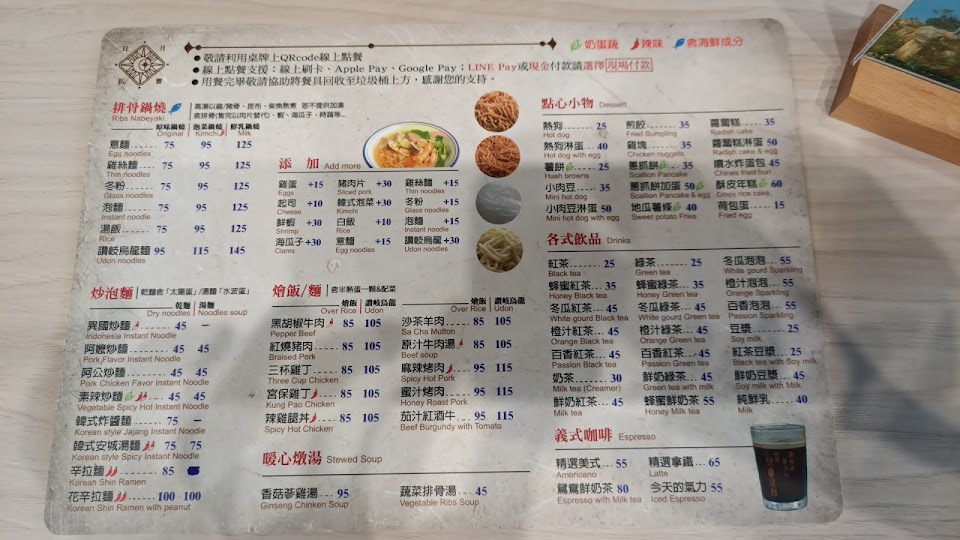 日 月
● 敬請利用桌牌上QRcode線上點餐
● 線上點餐支援：線上刷卡、Apple Pay、Google Pay；LINE Pay或現金付款請選擇現場付款
● 用餐完畢敬請協助將餐具回收至垃圾桶上方，感謝您的支持。
奶蛋蔬 辣味 含海鮮成分
排骨鍋燒
Ribs Nabeyaki
高湯以雞/豬骨、昆布、柴魚熬煮 恕不提供加湯
含排骨(售完以肉片替代)、蝦、海瓜子、時蔬等...
原味鍋燒 泡菜鍋燒 鮮乳鍋燒
Original Kimchi Milk
意麵 75 95 125
Egg noodles
雞絲麵 75 95 125
Thin noodles
冬粉 75 95 125
Glass noodles
泡麵 75 95 125
Instant noodle
湯飯 75 95 125
Rice
讚岐烏龍麵 95 115 145
Udon noodles
添 加 Add more
雞蛋 +15 豬肉片 +30 雞絲麵 +15
Eggs Sliced pork Thin noodles
起司 +10 韓式泡菜 +30 冬粉 +15
Cheese Kimchi Glass noodles
鮮蝦 +30 白飯 +10 泡麵 +15
Shrimp Rice Instant noodle
海瓜子 +30 意麵 +15 讚岐烏龍 +30
Clams Egg noodles Udon noodles
炒泡麵
乾麵含「太陽蛋」/湯麵「水波蛋」
乾麵 湯麵
Dry noodles Noodles soup
異國炒麵 45 —
Indonesia Instant Noodle
阿嬤炒麵 45 45
Pork Flavor Instant Noodle
阿公炒麵 45 45
Pork Chicken Favor Instant Noodle
素辣炒麵 45 45
Vegetable Spicy Hot Instant Noodle
韓式炸醬麵 75 —
Korean style Jajang Instant Noodle
韓式安城湯麵 75 75
Korean style Spicy Instant Noodle
辛拉麵 85
Korean Shin Ramen
花辛拉麵 100 100
Korean Shin Ramen with peanut
燴飯/麵
含半熟蛋一顆&配菜
燴飯 讚岐烏龍 燴飯 讚岐烏龍
Over Rice Udon Over Rice Udon
黑胡椒牛肉 85 105 沙茶羊肉 85 105
Pepper Beef Sa Cha Mutton
紅燒豬肉 85 105 原汁牛肉湯 85 105
Braised Pork Beef soup
三杯雞丁 85 105 麻辣烤肉 95 115
Three Cup Chicken Spicy Hot Pork
宮保雞丁 85 105 蜜汁烤肉 95 115
Kung Pao Chicken Honey Roast Pork
辣雞腿丼 85 105 茄汁紅酒牛 95 115
Spicy Hot Chicken Beef Burgundy with Tomato
暖心燉湯 Stewed Soup
香菇蔘雞湯 95 蔬菜排骨湯 45
Ginseng Chinken Soup Vegetable Ribs Soup
點心小物 Dessert
熱狗 25 煎餃 35 蘿蔔糕 35
Hot dog Fried Bumpling Radish cake
熱狗淋蛋 40 雞塊 35 蘿蔔糕淋蛋 50
Hot dog with egg Chicken nuggets Radish cake & egg
薯餅 25 蔥抓餅 35 爆水炸蛋蔥 45
Hash browns Scallion Pancake Chines fried bun
小肉豆 35 蔥抓餅加蛋 50 酥皮年糕 60
Mini hot dog Scallion Pancake & egg Crispy rice cake
小肉豆淋蛋 50 地瓜薯條 40 荷包蛋 15
Mini hot dog with egg Sweet potato Fries Fried egg
各式飲品 Drinks
紅茶 25 綠茶 25 冬瓜泡泡 55
Black tea Green tea White gourd Sparkling
蜂蜜紅茶 35 蜂蜜綠茶 35 橙汁泡泡 55
Honey Black tea Honey Green tea Orange Sparkling
冬瓜紅茶 45 冬瓜綠茶 45 百香泡泡 55
White gourd Black tea White gourd Green tea Passion Sparkling
橙汁紅茶 45 橙汁綠茶 45 豆漿 25
Orange Black tea Orange Green tea Soy milk
百香紅茶 45 百香綠茶 45 紅茶豆漿 25
Passion Black tea Passion Green tea Black tea with Soy milk
奶茶 30 鮮奶綠茶 45 鮮奶豆漿 45
Milk tea (Creamer) Green tea with milk Soy milk with Milk
鮮奶紅茶 45 蜂蜜鮮奶茶 55 純鮮乳 40
Milk tea Honey Milk tea Milk
義式咖啡 Espresso
精選美式 55 精選拿鐵 65
Americano Latte
鴛鴦鮮奶茶 80 今天的氣力 55
Espresso with Milk tea Iced Espresso